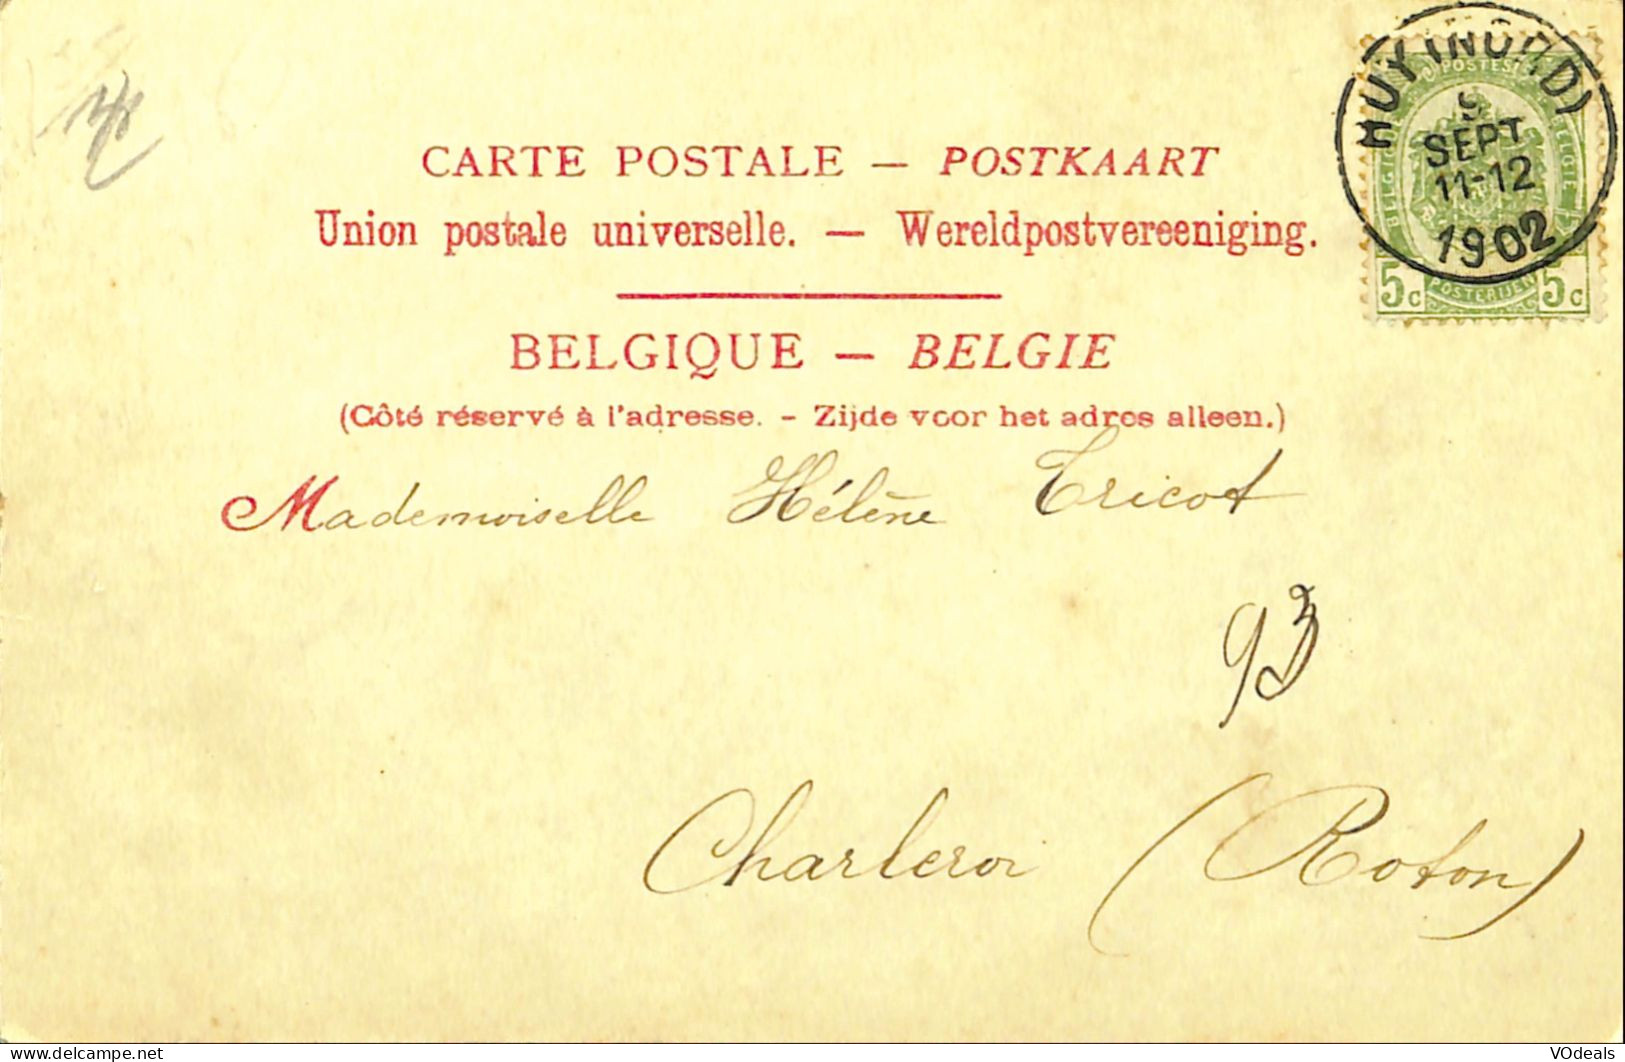 HUY (NORD)
SEPT
11-12
1902
POSTES
BELGIQUE BELGIE
5c POSTERIJEN 5c
CARTE POSTALE — POSTKAART
Union postale universelle. — Wereldpostvereeniging.
BELGIQUE — BELGIE
(Côté réservé à l'adresse. - Zijde voor het adres alleen.)
Mademoiselle Hélène Tricot
93
Charleroi (Roton)
VOdeals